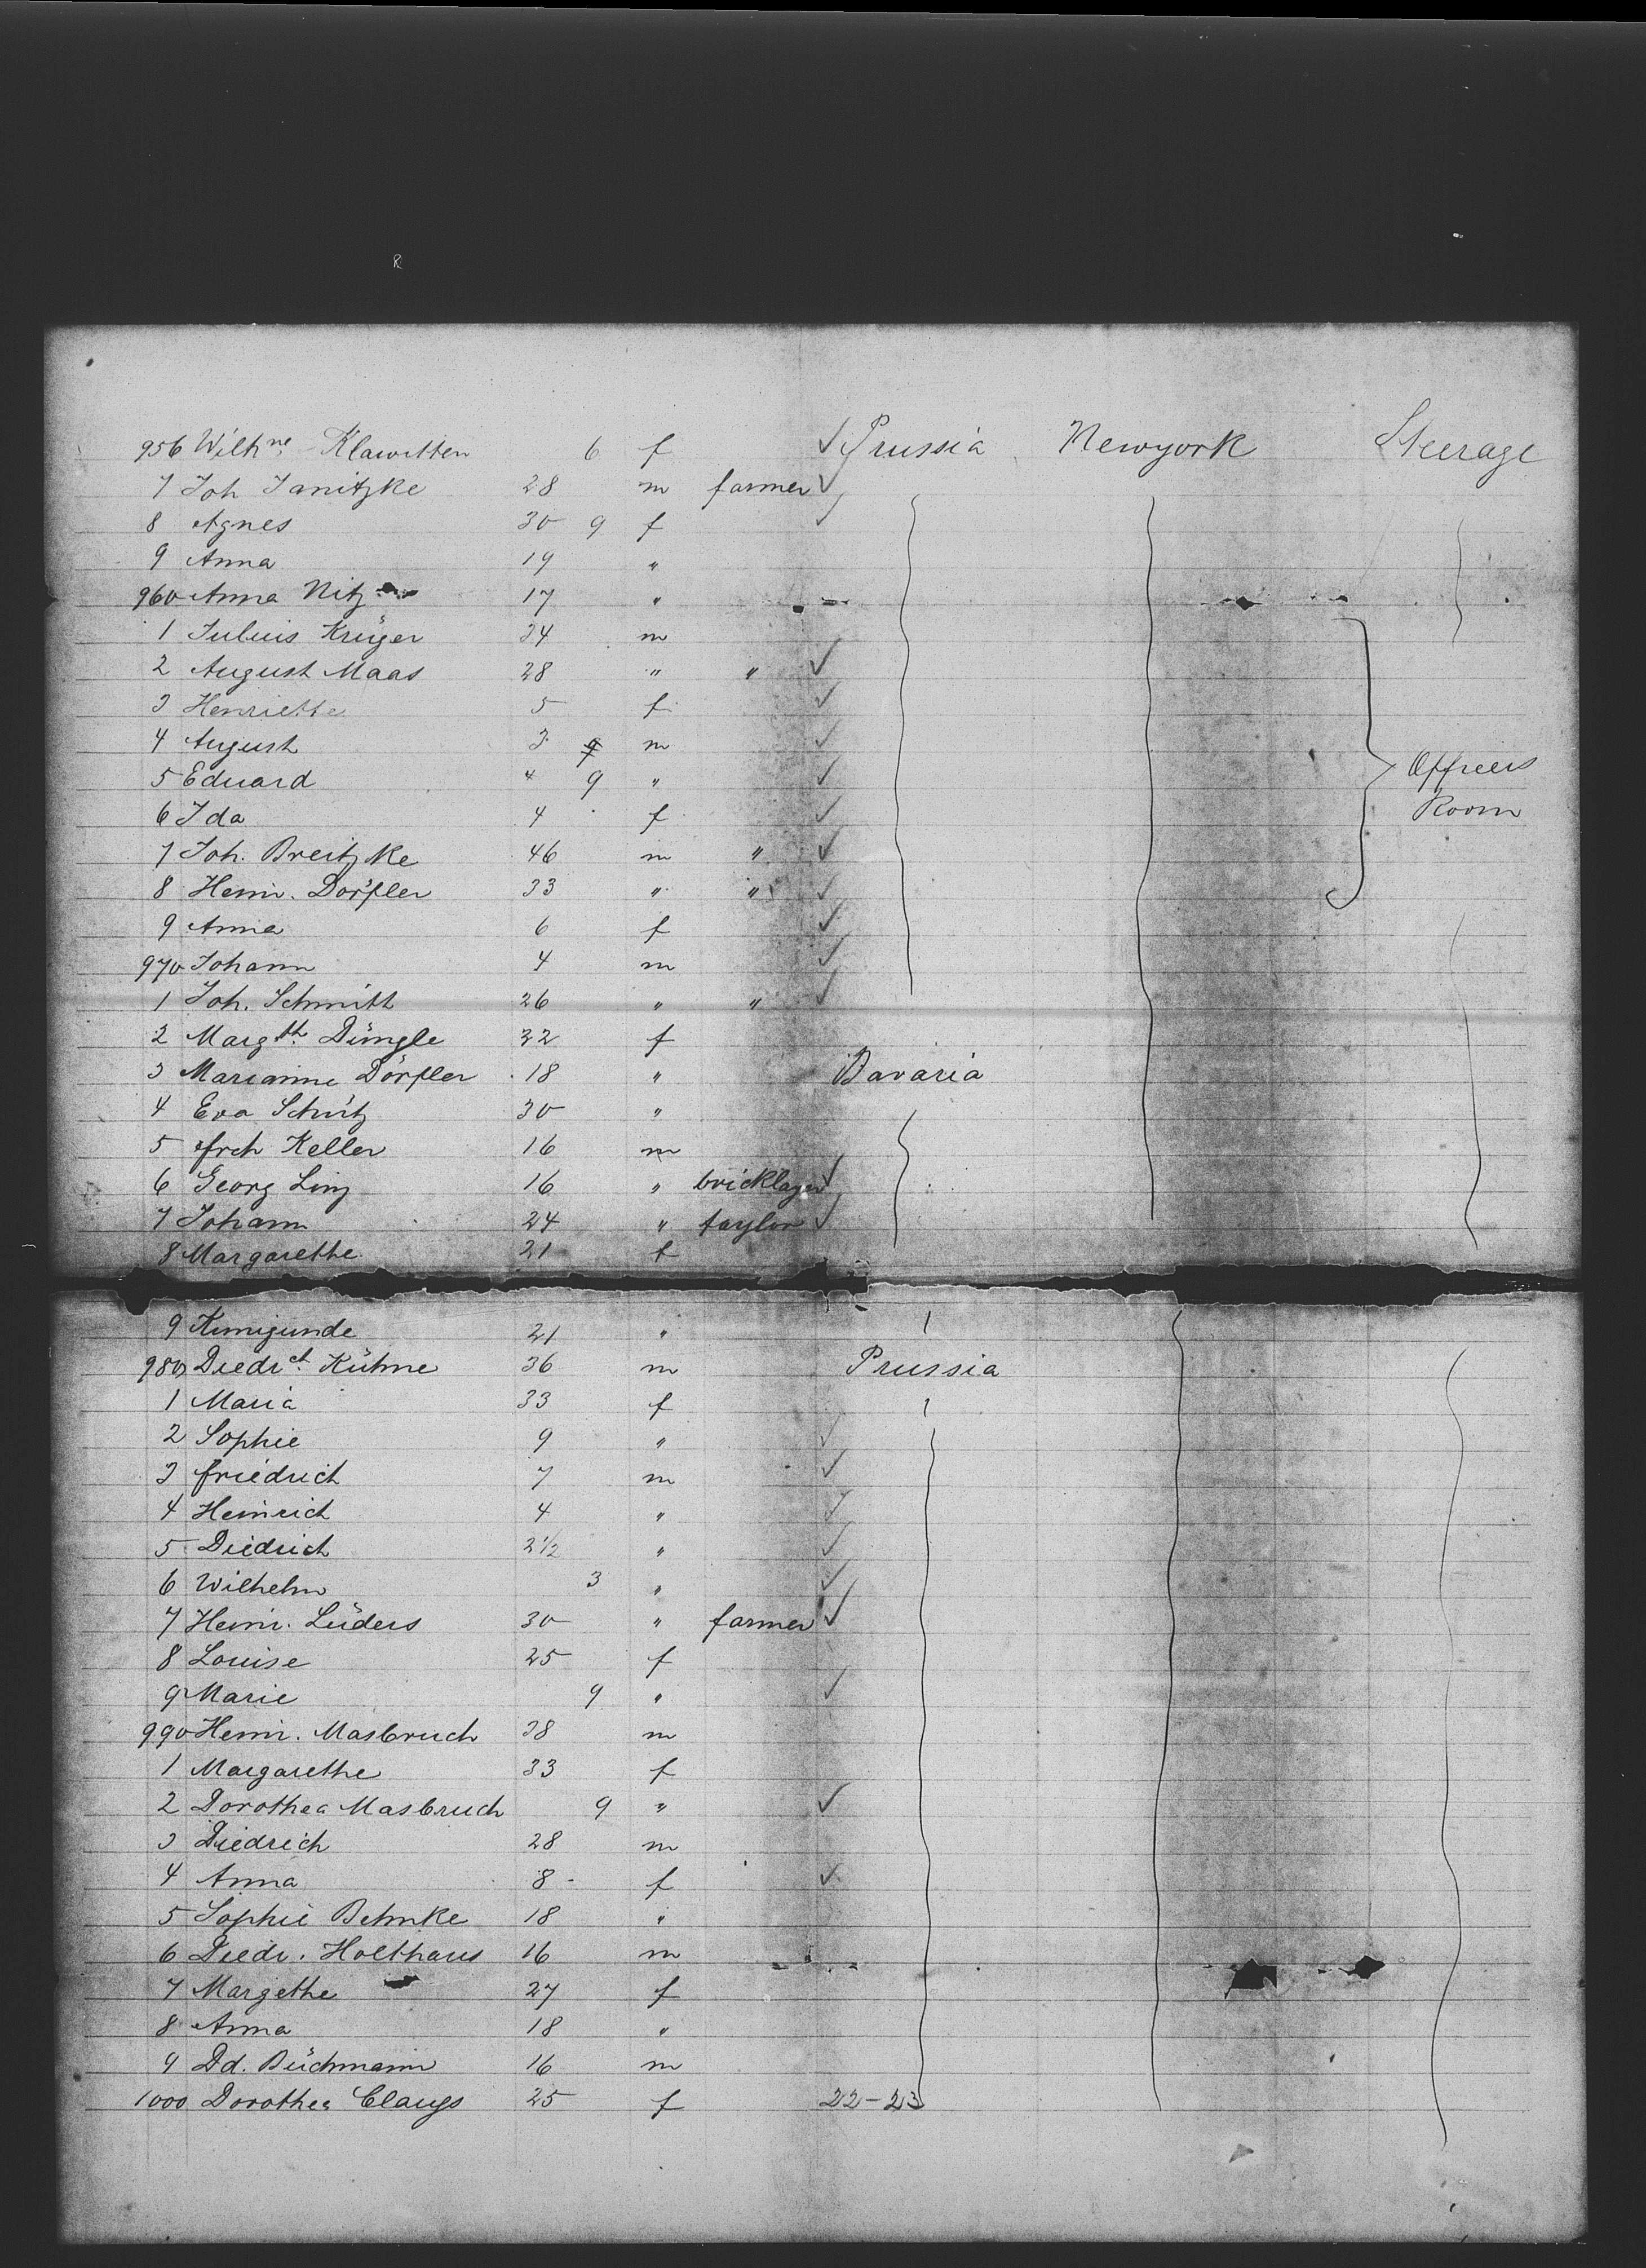 R
956 Wilhne. Klawitten 6 f ✓ Prussia Newyork Steerage
7 Joh Janitzke 28 m farmer ✓
8 Agnes 30 9 f ✓
9 Anna 19 "
960 Anna Nitz 17 "
1 Julius Krüger 24 m
2 August Maas 28 " " ✓
3 Henriette 5 f ✓
4 August 3 m ✓
5 Eduard " 9 " ✓
6 Ida 4 f ✓
Officers
Room
7 Joh. Breitzke 46 m " ✓
8 Heinr. Dörfler 33 " " ✓
9 Anna 6 f ✓
970 Johann 4 m ✓
1 Joh. Schmitt 26 " " ✓
2 Margth. Düngle 32 f
3 Marianne Dörfler 18 " Bavaria
4 Eva Schütz 30 "
5 Frch Keller 16 m
6 Georg Linz 16 " bricklayer ✓
7 Johann 24 " taylor ✓
8 Margarethe 21 f
9 Kunigunde 21 "
980 Diedrch. Kühne 36 m Prussia
1 Maria 33 f
2 Sophie 9 " ✓
3 Friedrich 7 m ✓
4 Heinrich 4 " ✓
5 Diedrich 2 1/2 " ✓
6 Wilhelm 3 " ✓
7 Heinr. Lüders 30 " farmer ✓
8 Louise 25 f
9 Marie 9 " ✓
990 Heinr. Masbruch 38 m
1 Margarethe 33 f
2 Dorothea Masbruch 9 " ✓
3 Diedrich 28 m
4 Anna 8 f ✓
5 Sophie Behnke 18 "
6 Diedr. Holthaus 16 m
7 Margethe 27 f
8 Anna 18 "
9 Dd. Büchmann 16 m
1000 Dorothea Clauss 25 f 22-23